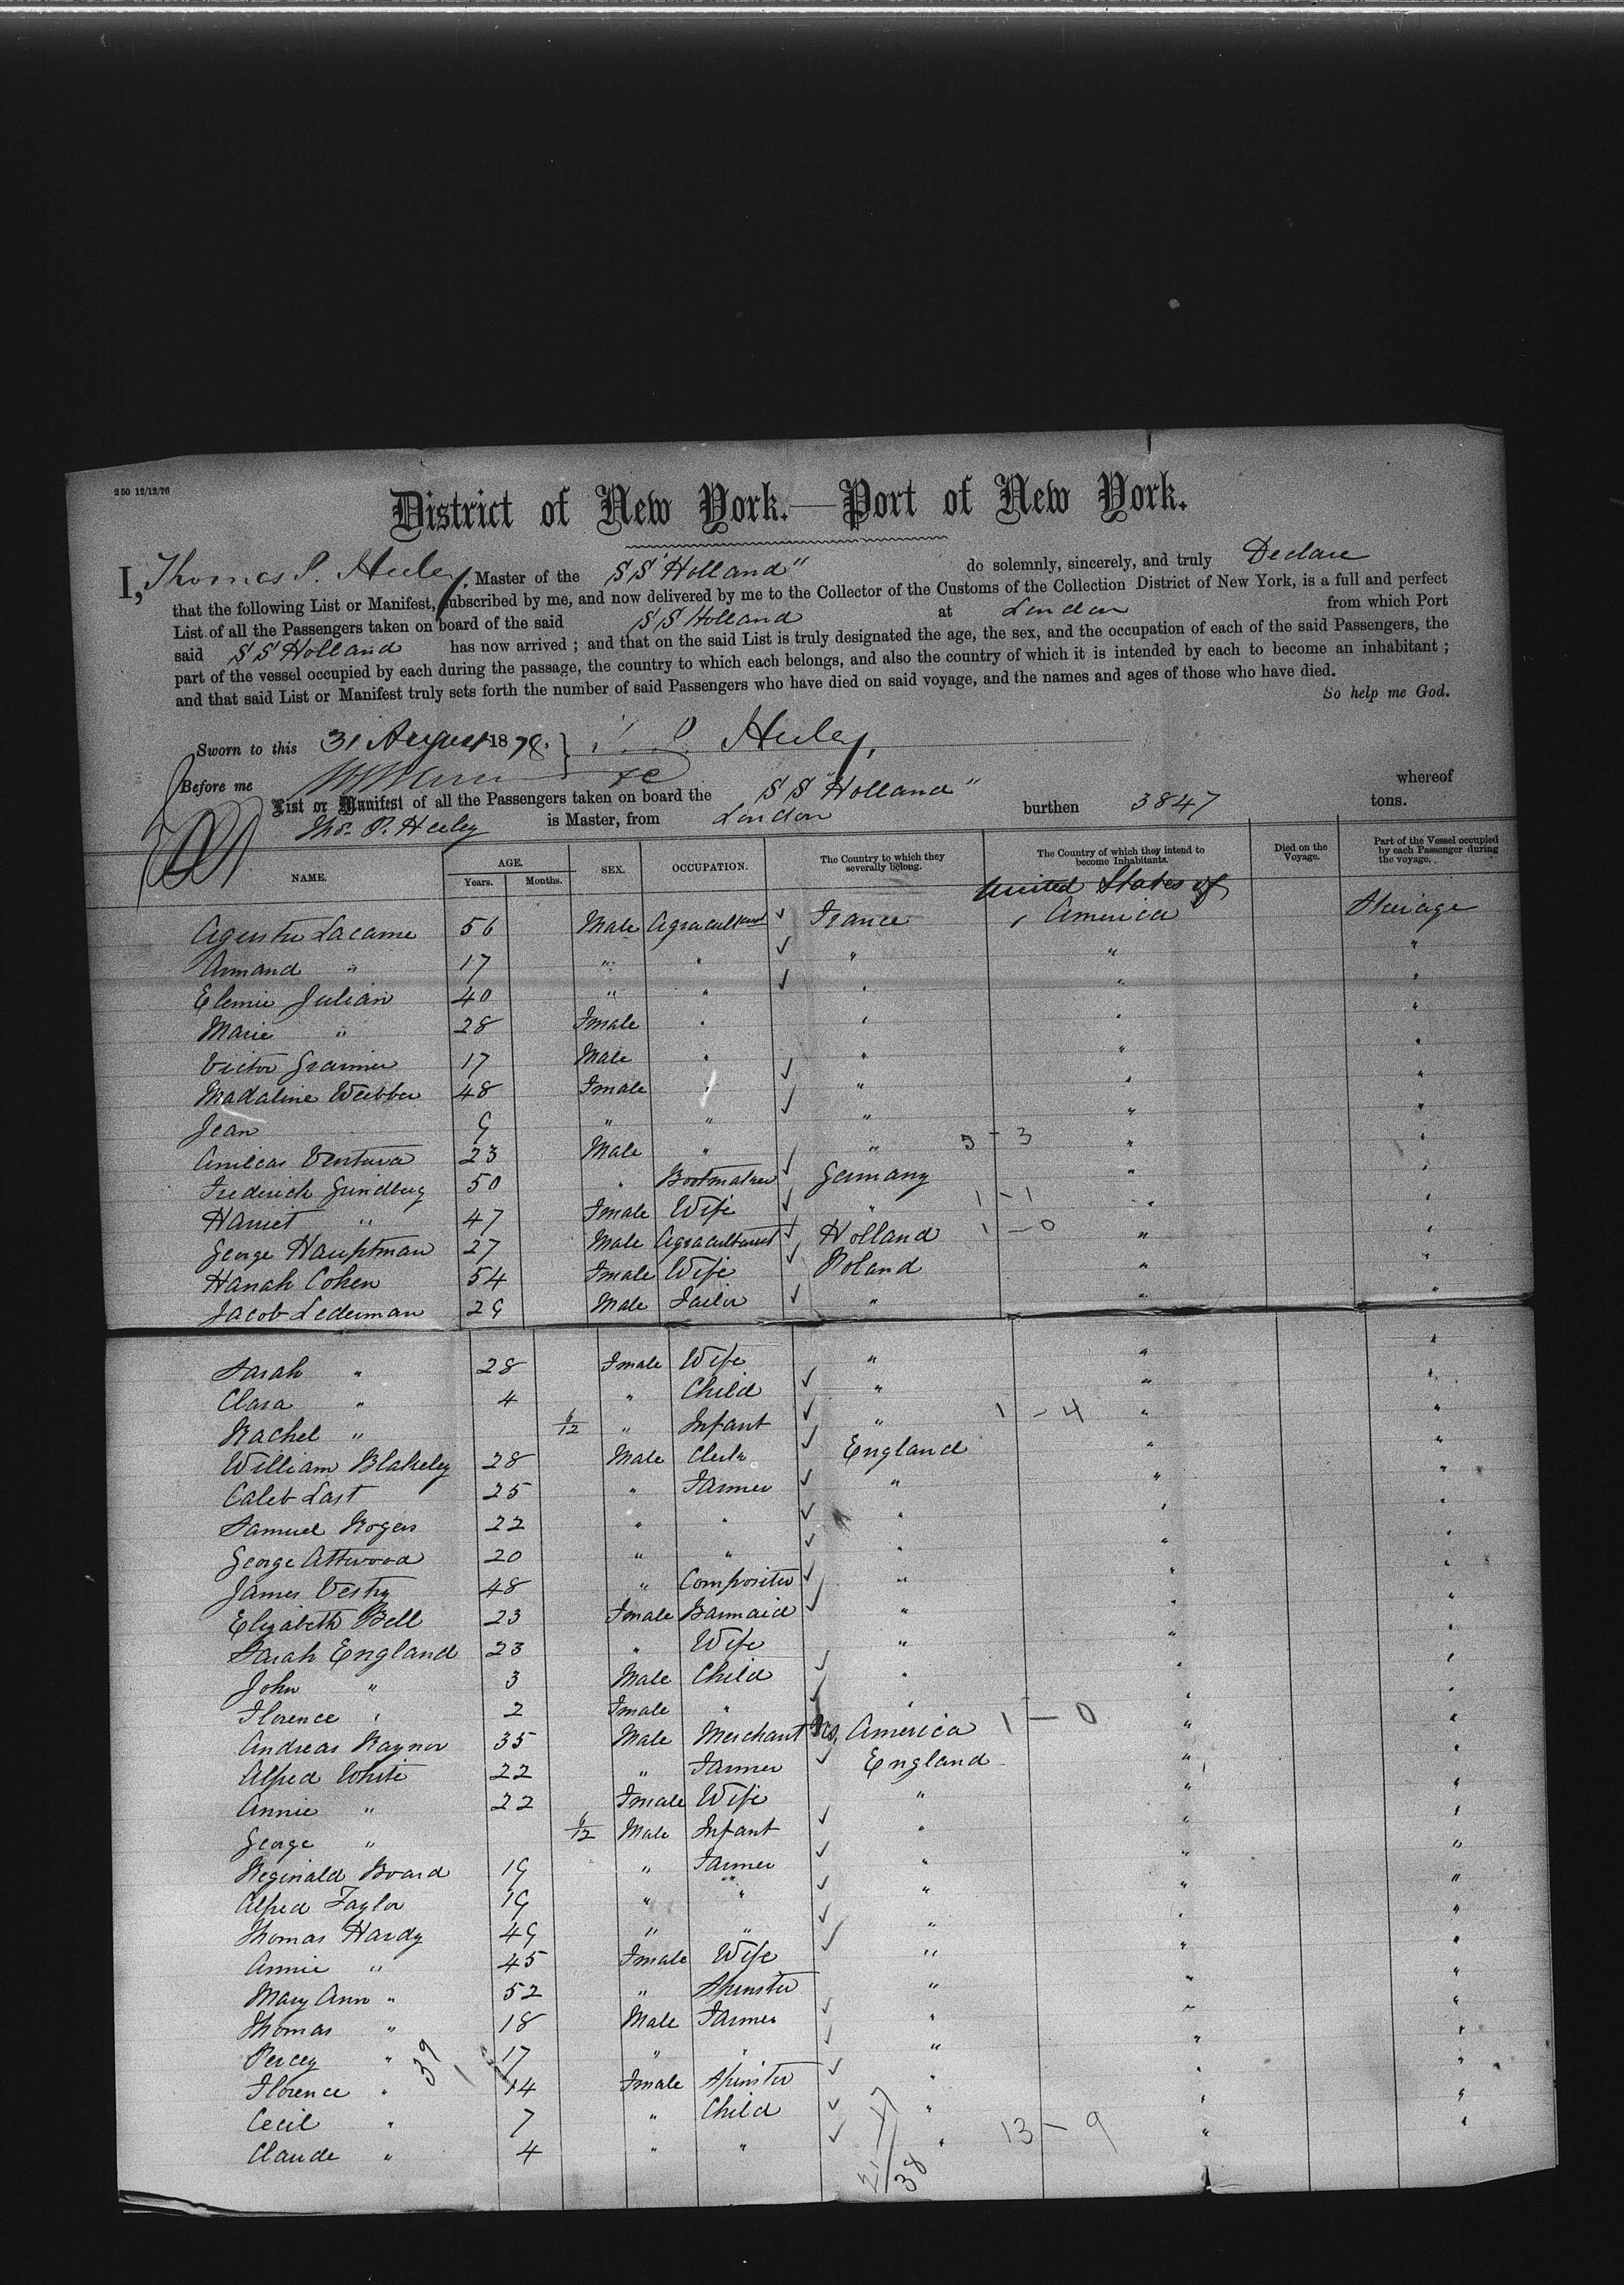 250 12/12/76
District of New York.—Port of New York.
I, Thomas P. Heeley, Master of the SS "Holland" do solemnly, sincerely, and truly Declare
that the following List or Manifest, subscribed by me, and now delivered by me to the Collector of the Customs of the Collection District of New York, is a full and perfect
List of all the Passengers taken on board of the said SS Holland at London from which Port
said SS Holland has now arrived ; and that on the said List is truly designated the age, the sex, and the occupation of each of the said Passengers, the
part of the vessel occupied by each during the passage, the country to which each belongs, and also the country of which it is intended by each to become an inhabitant ;
and that said List or Manifest truly sets forth the number of said Passengers who have died on said voyage, and the names and ages of those who have died.
So help me God.
Sworn to this 31 August 1878. } T. P. Heeley,
Before me
List or Manifest of all the Passengers taken on board the SS "Holland" whereof
Thos. P. Heeley is Master, from London burthen 3847 tons.
NAME. AGE. Years. Months. SEX. OCCUPATION. The Country to which they severally belong. The Country of which they intend to become Inhabitants. Died on the Voyage. Part of the Vessel occupied by each Passenger during the voyage.
United States of
Lacame 56 Male France America Steerage
Armand " 17 " " ✓ " " "
Julian 40 " " ✓ " " "
Marie " 28 Fmale " " " "
Victor 17 Male " ✓ " " "
Madaline Webber 48 Fmale " ✓ " " "
Jean 9 " " " " "
Ventura 23 Male " ✓ " 5-3 " "
Frederich Grindberg 50 " Bootmaker ✓ Germany " "
Harriet " 47 Fmale Wife ✓ " 1-1 " "
George Hauptman 27 Male Agraculturist ✓ Holland 1-0 " "
Hanah Cohen 54 Fmale Wife ✓ Poland " "
Jacob Lederman 29 Male Tailor ✓ " " "
Sarah " 28 Fmale Wife " " "
Clara " 4 " Child ✓ " " "
Rachel " 6/12 " Infant ✓ " 1-4 " "
William Blakeley 28 Male Clerk ✓ England " "
Caleb Last 25 " Farmer ✓ " " "
Samuel Rogers 22 " " ✓ " " "
George Attwood 20 " " ✓ " " "
James Vestry 48 " Compositer ✓ " " "
Elizabeth Bell 23 Fmale Barmaid ✓ " " "
Sarah England 23 " Wife " " "
John " 3 Male Child ✓ " " "
Florence " 2 Fmale " ✓ " " "
Andreas Raynor 35 Male Merchant America 1-0 " "
Alfred White 22 " Farmer ✓ England " "
Annie " 22 Fmale Wife " " "
George " 6/12 Male Infant ✓ " " "
Reginald Board 19 " Farmer ✓ " " "
Alfred Taylor 19 " " ✓ " " "
Thomas Hardy 49 " " ✓ " " "
Annie " 45 Fmale Wife ✓ " " "
Mary Ann " 52 " Spinster " " "
Thomas " 18 Male Farmer ✓ " " "
Percey " 17 " " ✓ " " "
Florence " 14 Fmale Spinster ✓ " " "
Cecil " 7 " Child ✓ " " "
Claude " 4 " " ✓ " 13-9 " "
39
21/17
38